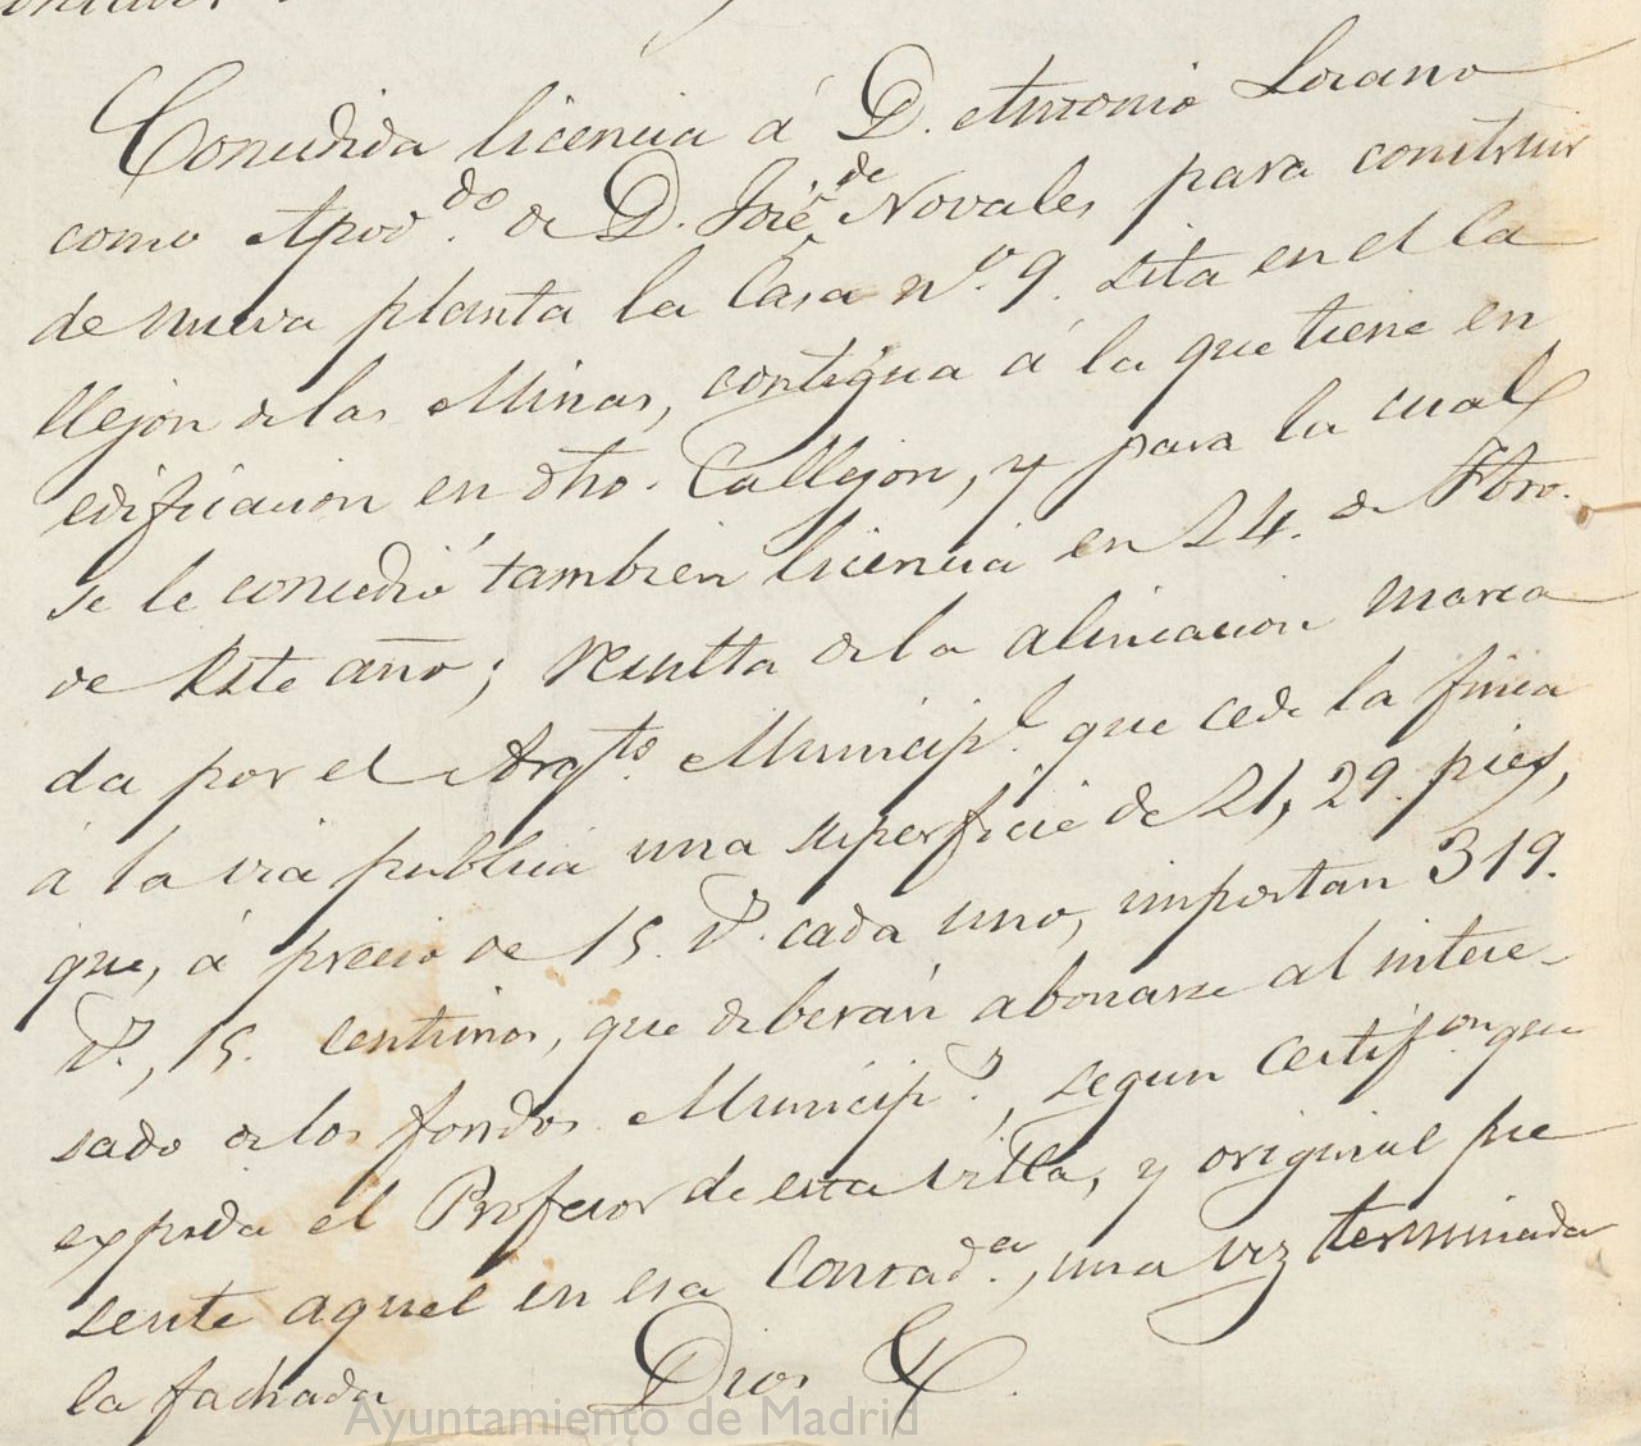 Concedida licencia á D. Antonio Lozano
como Apod.do de D. José de Novales para construir
de nueva planta la Casa n.º 9. sita en el Ca
llejon de las Minas, contigua á la que tiene en
edificacion en dho. Callejon, y para la cual
se le concedió tambien licencia en 24. de Fbro.
de este año; resulta de la alineacion marca
da por el Arq.to Municip.l que cede la finca
á la via publica una superficie de 21,29. pies,
que, á precio de 15. r.s cada uno, importan 319.
r.s, 15. centimos, que deberán abonarse al intere-
sado de los fondos Municip.s, segun certif.on que
expida el Profesor de esta Villa, y original pre
sente aquel en esa Contad.a, una vez terminada
la fachada Dios &.
Ayuntamiento de Madrid